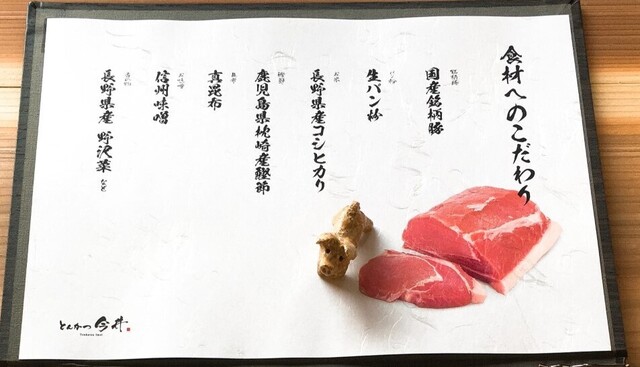 食材へのこだわり
国産銘柄豚
パン粉
生パン粉
お米
長野県産コシヒカリ
鰹節
鹿児島県枕崎産鰹節
昆布
真昆布
お味噌
信州味噌
長野県産 野沢菜 など
とんかつ 今井